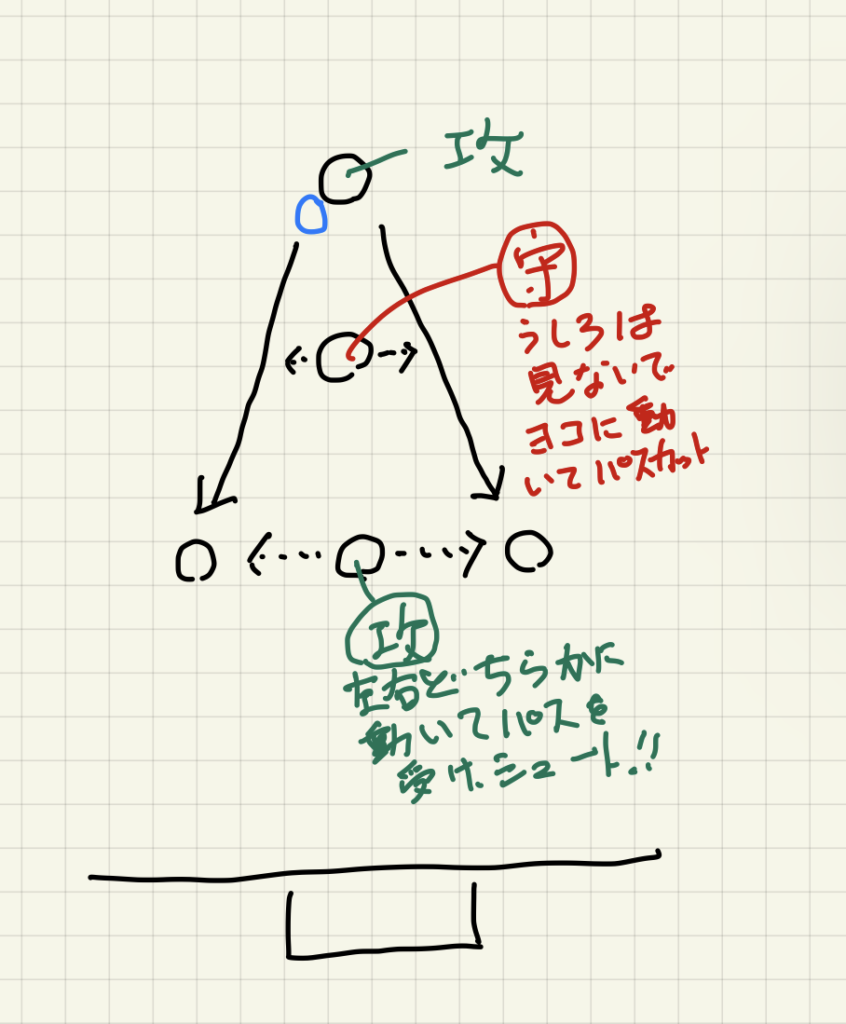 攻
守
うしろは
見ないで
ヨコに動
いてパスカット
攻
左右どちらかに
動いてパスを
受け、シュート!!